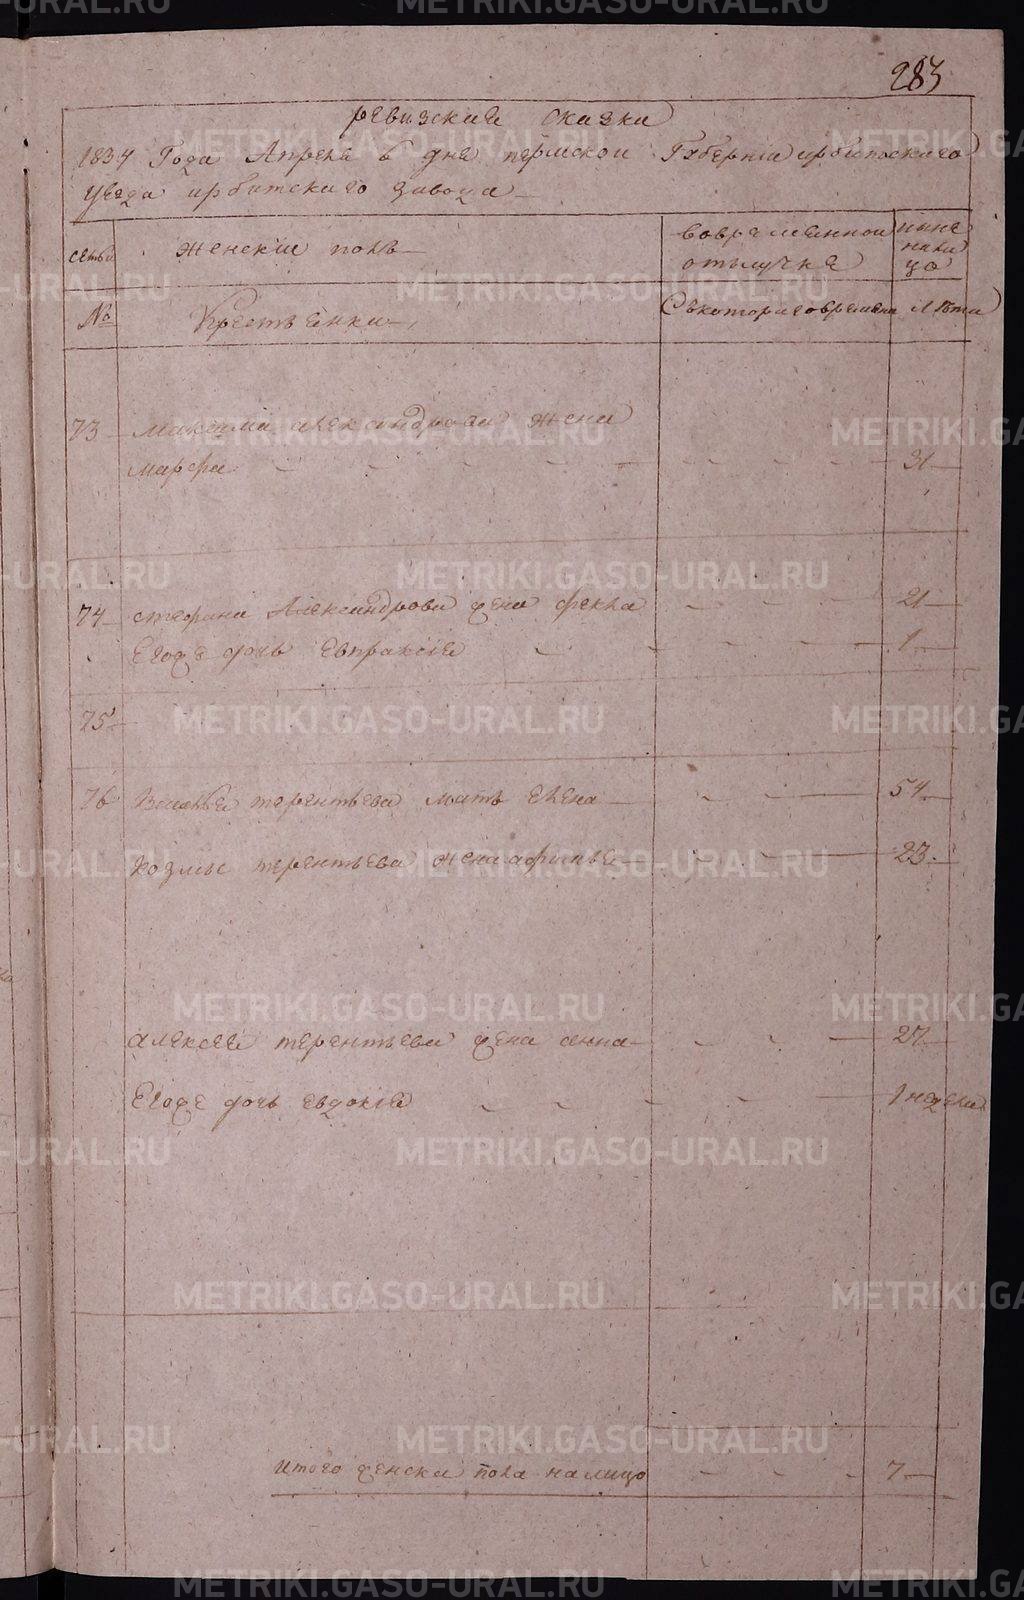 283
ревизские сказки
1834 Года Апреля 6 дня пермской Губернии ирбитского
уезда ирбитского завода
семьи женский полъ вовременной отлучке ныне налицо
№ Крестьенки Скотораговремени Лѣта
73 максима александрова жена
марфа 31
74 стефана Александрова жена фекла 21
Егоже дочь Евпраксие 1
75
76 терентьева мать Елена 54
козмы терентьева жена афимье 23
алексее терентьева жена анна 27
Егоже дочь евдокие 1 недели
итого женска пола налицо 7
METRIKI.GASO-URAL.RU